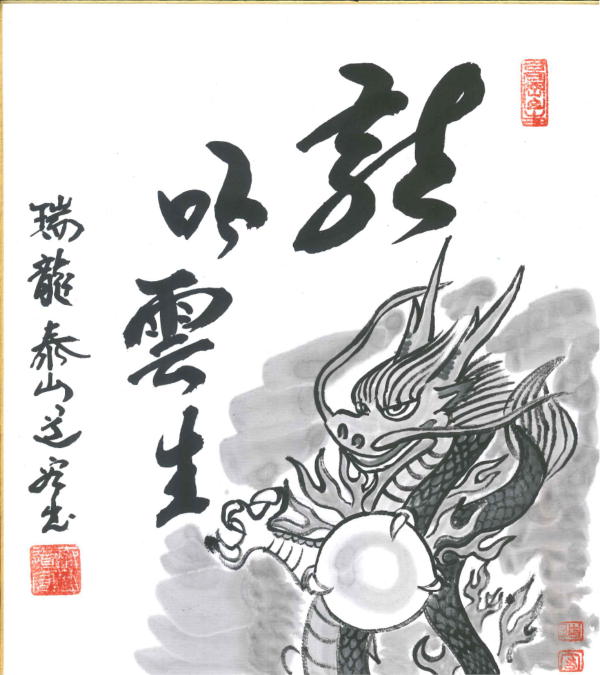 龍
吟雲生
瑞龍泰山道書